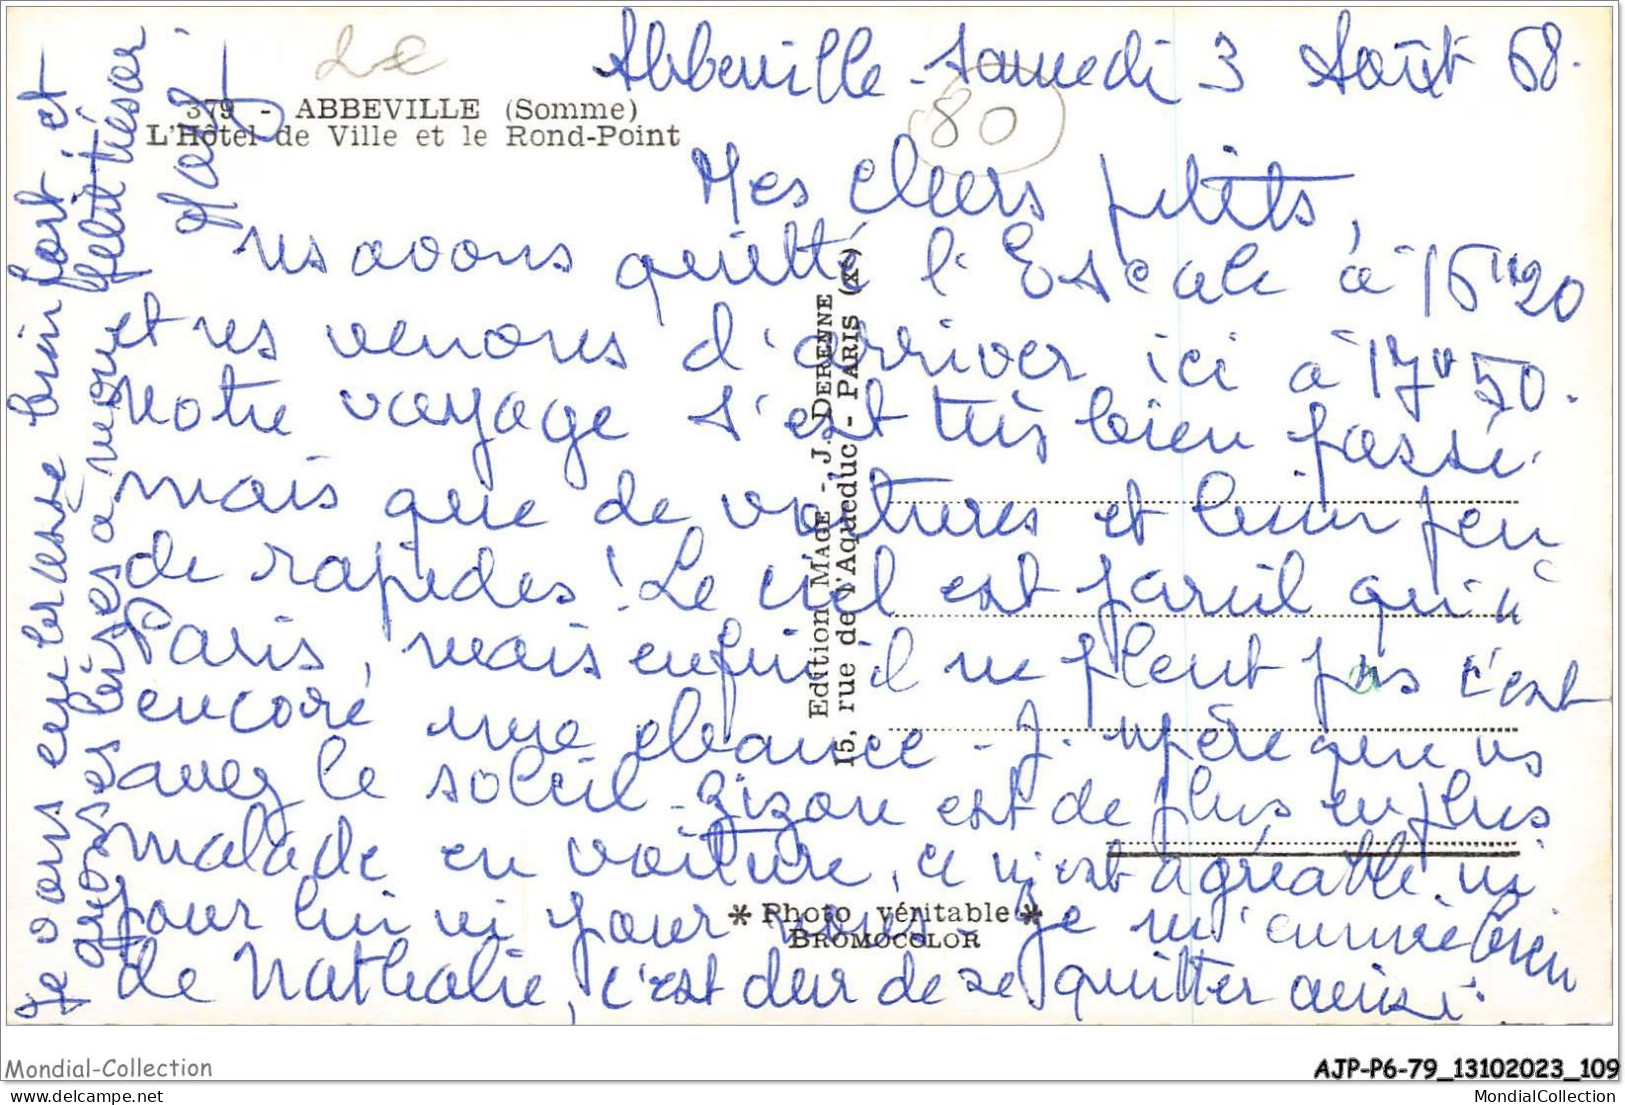 Abbeville - Samedi 3 Août 68.
80
379 - ABBEVILLE (Somme)
L'Hôtel de Ville et le Rond-Point
Mes chers petits,
ns avons quitté l'Escale à 16h20
et ns venons d'arriver ici à 17h50.
Notre voyage s'est très bien passé
mais que de voitures et bien peu
de rapides ! Le ciel est pareil qu'à
Paris, mais enfin il ne pleut pas c'est
encore une chance - J'espère que vs
avez le soleil - Zizou est de plus en plus
malade en voiture, ce n'est agréable ni
pour lui ni pour nous - Je m'ennuie bien
de Nathalie, c'est dur de se quitter ainsi.
Je vous embrasse bien fort et
grosses bises à mon petit trésor.
Edition MAGE - J. DERENNE
15, rue de l'Aqueduc - PARIS (Xe)
* Photo véritable *
BROMOCOLOR
Mondial-Collection
AJP-P6-79_13102023_109
MondialCollection